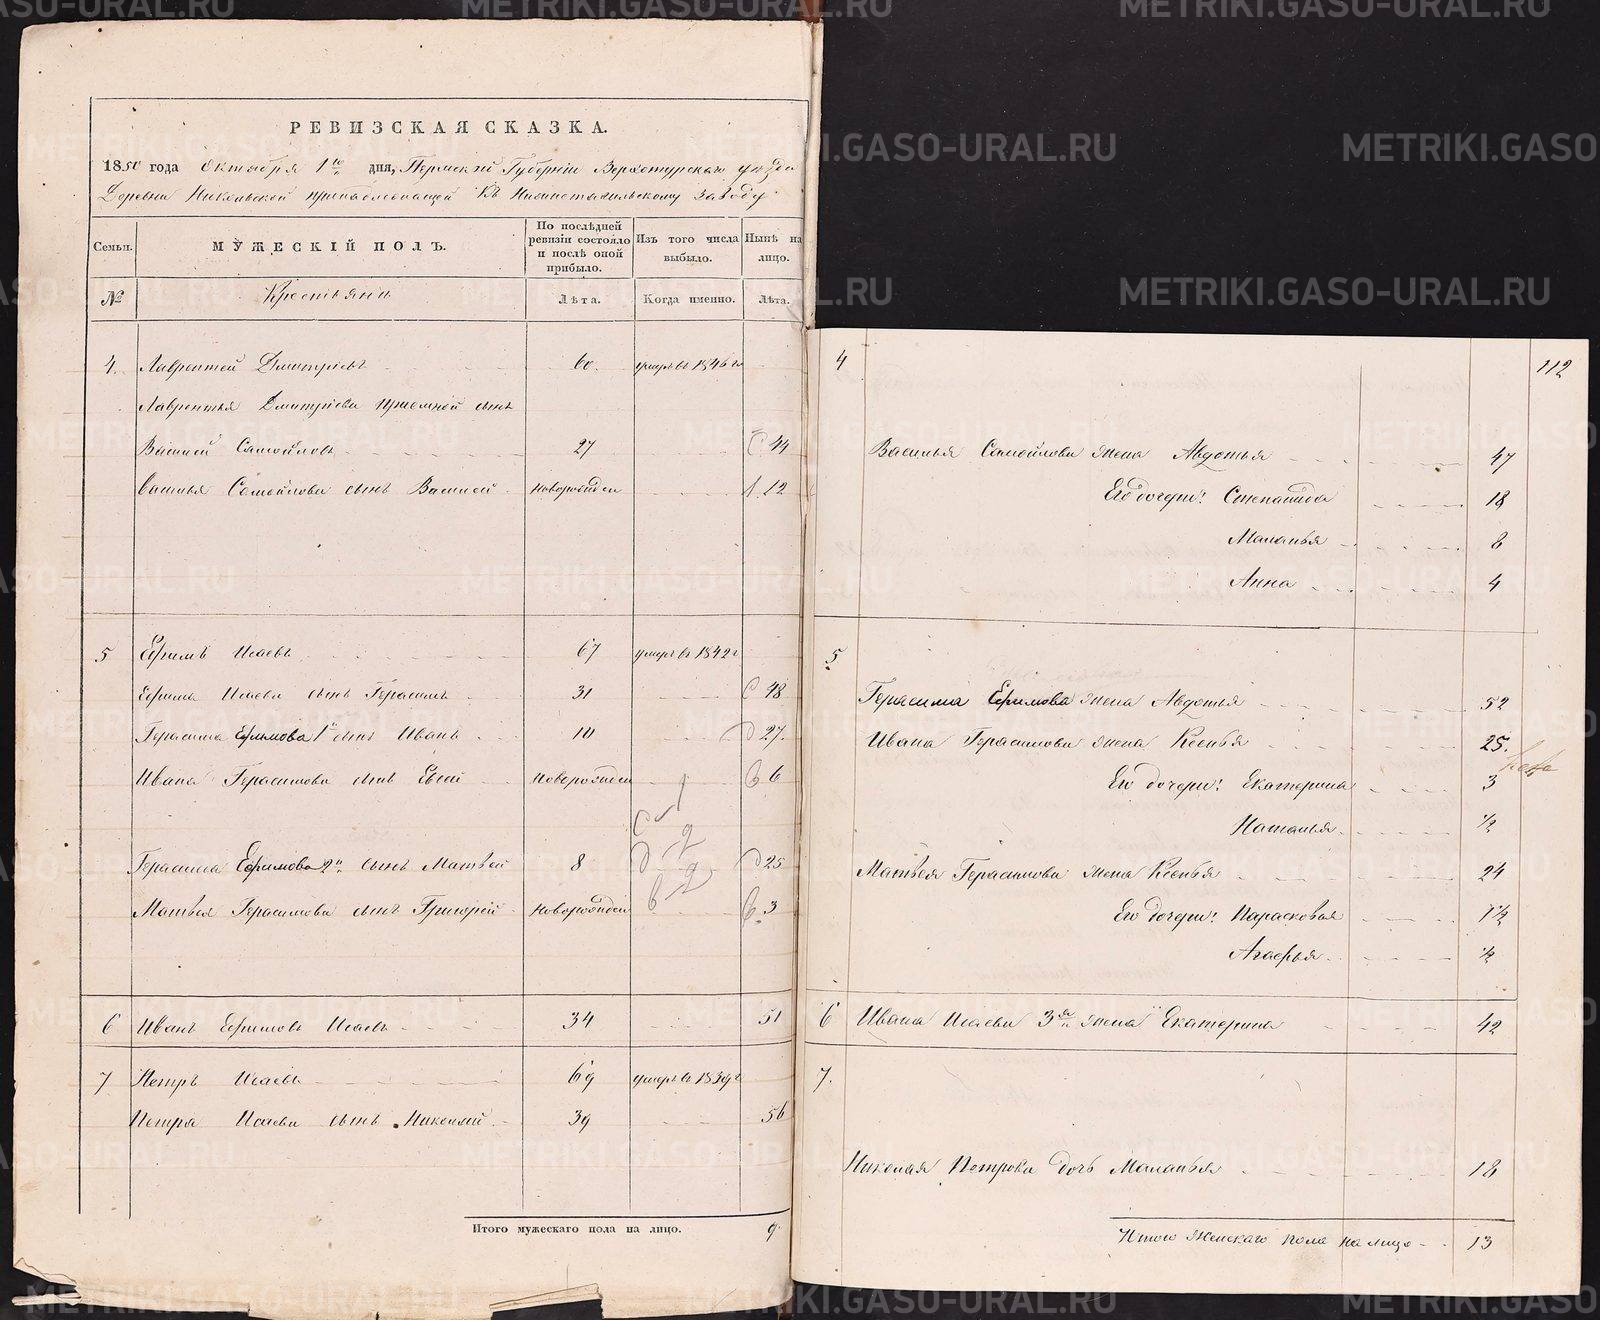 РЕВИЗСКАЯ СКАЗКА.
1850 года Октября 1го дня, Пермской Губерніи Верхотурскаго уѣзда
Деревни Никольской принадлежащей Къ Нижнетагильскому заводу
Семьи. МУЖЕСКІЙ ПОЛЪ. По послѣдней ревизіи состояло и послѣ оной прибыло. Изъ того числа выбыло. Нынѣ на лицо.
№ Крестьяне Лѣта. Когда именно. Лѣта.
4. Лаврентей Дмитріевъ 60. умеръ въ 1846 г
Лаврентья Дмитріева приемной сынъ
Василей Самойловъ 27 44
Василья Самойлова сынъ Василей новорожден 12
5 Ефимъ Исаевъ 67 умеръ въ 1842 г
Ефима Исаева сынъ Герасимъ 31 48
Герасима Ефимова 1й сынъ Иванъ 10 27.
Ивана Герасимова сынъ новорожден 6
Герасима Ефимова 2й сынъ Матвей 8 25
Матвея Герасимова сынъ Григорей новорожден 3
6 Иванъ Ефимовъ Исаевъ 34 51
7 Петръ Исаевъ 69 умеръ въ 1839 г
Петра Исаева сынъ Николай 39 56
Итого мужескаго пола на лицо. 9
112
4
Василья Самойлова жена Авдотья 47
Его дочери: Степанида 18
Маланья 8
Анна 4
5
Герасима Ефимова жена Авдотья 52
Ивана Герасимова жена Ксенья 25.
Его дочери: Екатерина 3
Наталья ½
Матвея Герасимова жена Ксенья 24
Его дочери: Парасковья 1½
Агафья ½
6 Ивана Исаева 3я жена Екатерина 42
7.
Николая Петрова дочь Маланья 18
Итого женскаго пола на лицо 13
METRIKI.GASO-URAL.RU